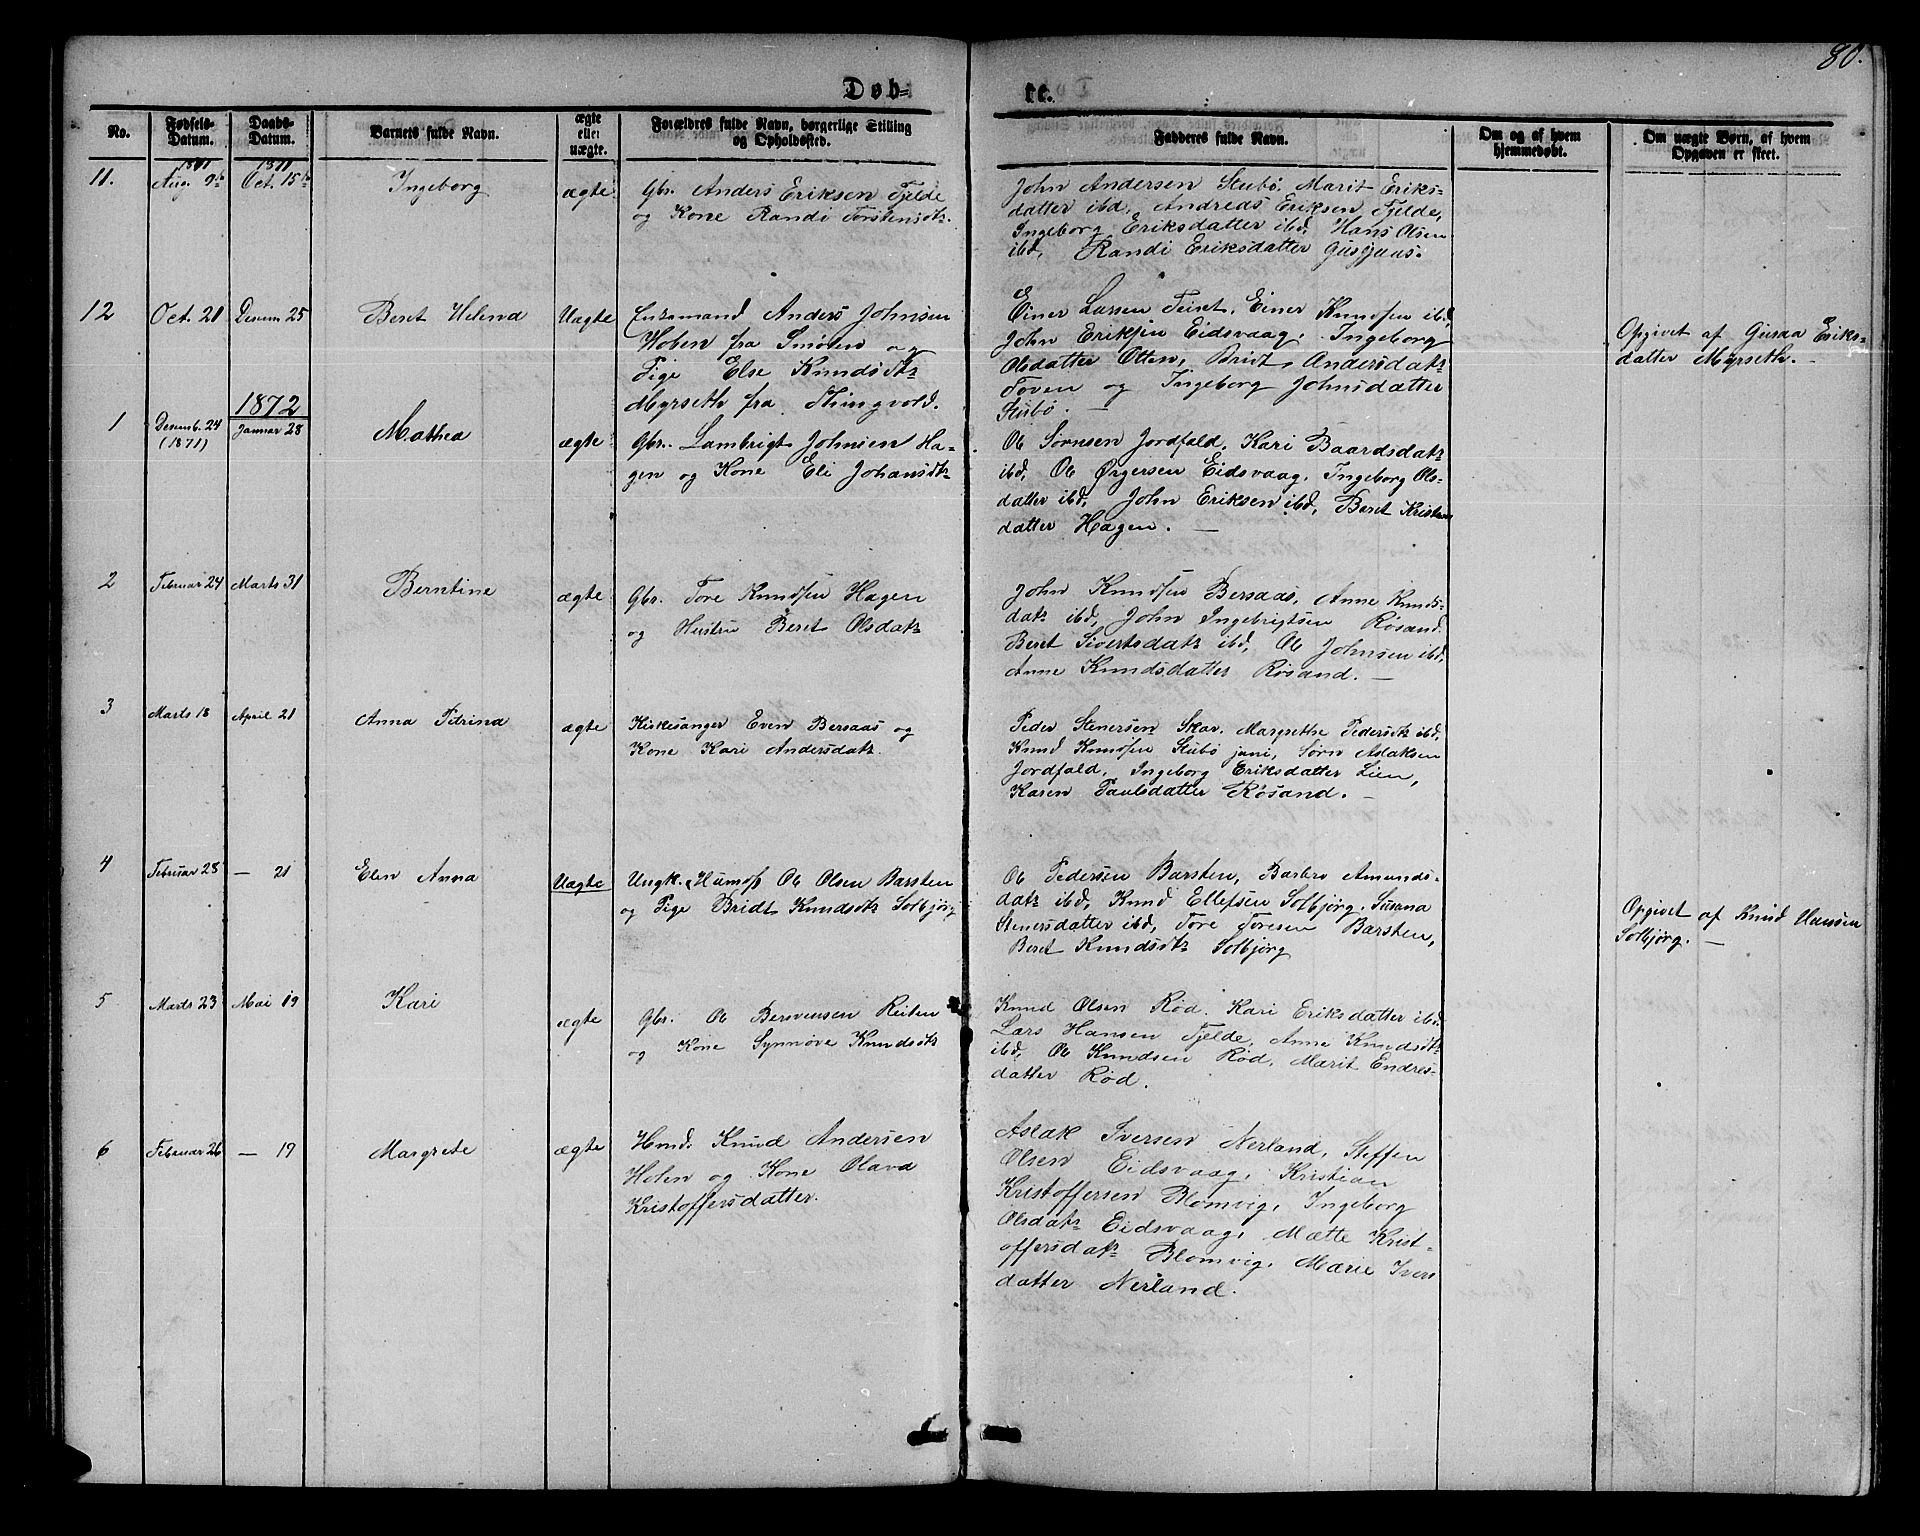 80.
Døb-
te.
No.
Fødsels-
Datum.
Daabs-
Datum.
Barnets fulde Navn.
ægte
eller
uægte.
Forældres fulde Navn, borgerlige Stilling
og Opholdssted.
Fadderes fulde Navn.
Om og af hvem
hjemmedøbt.
Om uægte Børn, af hvem
Opgaven er skeet.
11.
1871
Aug. 9de
1871
Oct. 15de
Ingeborg
ægte
Gbr. Anders Eriksen Fjelde
og Kone Randi Torstensdtr.
John Andersen Stubø, Marit Eriks-
datter ibd, Andreas Eriksen Fjelde,
Ingeborg Eriksdatter ibd, Hans Olsen
ibd, Randi Eriksdatter Gusjaas.
12
Oct. 21
Decem. 25
Beret Helena
Uægte
Enkemand Anders Johnsen
Hoben fra Smølen og
Pige Else Knudsdtr
Myrseth fra Thingvold.
Einer Larsen Teiset, Einer Knudsen ibd,
John Eriksen Eidsvaag, Ingeborg
Olsdatter Otten, Brit Andersdatr
Toven og Ingeborg Johnsdatter
Stubø.
Opgivet af Guraa Eriks-
datter Myrseth. —
1872
1
Decemb. 24
(1871)
Januar 28
Mathea
ægte
Gbr. Lambrigt Johnsen Ha-
gen og Kone Eli Johansdtr
Ole Sørnsen Jordfald, Kari Baardsdatr
ibd, Ole Ørgersen Eidsvaag, Ingeborg Ols-
datter ibd, John Eriksen ibd, Beret Kristens
datter Hagen. —
2
Februar 24
Marts 31
Berntine
ægte
Gbr. Tore Knudsen Hagen
og Hustru Beret Olsdatr
John Knudsen Bersaas, Anne Knuds-
datr ibd, John Ingebrigtsen Røsand
Beret Sivertsdatr ibd, Ole Johnsen ibd,
Anne Knudsdatter Røsand. —
3
Marts 18
April 21
Anna Petrina
ægte
Kirkesanger Even Bersaas og
Kone Kari Andersdatr.
Peder Stenersen Skar, Margrethe Pedersdtr ibd,
Knud Knudsen Stubø juni, Sørn Aslaksen
Jordfald, Ingeborg Eriksdatter Lien,
Karen Paulsdatter Røsand. —
4
Februar 28
— 21
Elen Anna
Uægte
Ungk. Husmds Ole Olsen Barsten
og Pige Bridt Knudsdtr Solbjørg
Ole Pedersen Barsten, Barbro Amunds-
datr ibd, Knud Ellefsen Solbjørg, Susana
Stenersdatter ibd, Tore Toresen Barsten,
Beret Knudsdtr Solbjørg
Opgivet af Knud Hansen
Solbjørg. —
5
Marts 23
Mai 19
Kari
ægte
Gbr. Ole Bersvensen Reiten
og Kone Synnøve Knudsdtr
Knud Olsen Rød, Kari Eriksdatter ibd
Lars Hansen Fjelde, Anne Knudsdtr
ibd, Ole Knudsen Rød, Marit Endres-
datter Rød.
6
Februar 26
— 19
Margrete
ægte
Hmd. Knud Andersen
Holen og Kone Olava
Kristoffersdatter.
Aslak Iversen Nerland, Steffen
Olsen Eidsvaag, Kristian
Kristoffersen Blomvig, Ingeborg
Olsdatr Eidsvaag, Mætte Krist-
offersdatr Blomvig, Marie Ivers
datter Nerland.